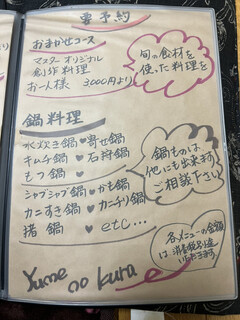 要予約
おまかせコース
マスターオリジナル
創作料理
お一人様 3000円より
旬の食材を
使った料理を
鍋料理
水炊き鍋♥寄せ鍋
キムチ鍋♥石狩鍋
もつ鍋♥
シャブシャブ鍋♥かも鍋
カニすき鍋♥カニチリ鍋
猪鍋♥etc...
鍋ものは
他にも出来ます
ご相談下さい
各メニューの金額
は消費税別途
いただきます
Yume no Kura